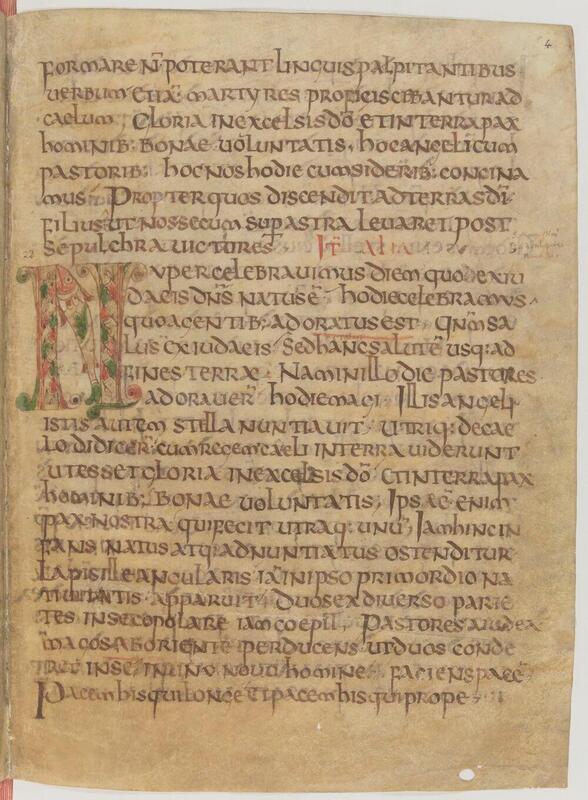 4
FORMARE N̄ POTERANT LINGUIS PALPITANTIBUS
UERBUM ETIĀ. MARTYRES PROFICISCEBANTUR AD
CAELUM; GLORIA IN EXCELSIS DŌ ET IN TERRA PAX
HOMINIB; BONAE UOLUNTATIS, HOC ANGELI CUM
PASTORIB; HOC NOS HODIE CUM SIDERIB; CONCINA
MUS. PROPTER QUOS DISCENDIT AD TERRAS DĪ
FILIUS UT NOS SECUM SUP ASTRA LEUARET POST
SEPULCHRA UICTURES IT ALIA
22
NUPER CELEBRAUIMUS DIEM QUO EX IU
DAEIS DN̄S NATUS Ē. HODIE CELEBRAMUS
QUO A GENTIB; ADORATUS EST. QNM̄ SA
LUS EX IUDAEIS SED HAEC SALUTĒ USQ; AD
FINES TERRAE. NAM IN ILLO DIE PASTORES
ADORAUER̄ HODIE MAGI. ILLIS ANGELI
ISTIS AUTEM STELLA NUNTIAUIT. UTRIQ; DE CAE
LO DIDICER̄ CUM REGEM CAELI IN TERRA UIDERUNT
UT ESSET GLORIA IN EXCELSIS DŌ ET IN TERRA PAX
HOMINIB; BONAE UOLUNTATIS; IPSE Ē ENIM
PAX NOSTRA QUI FECIT UTRAQ; UNŪ; IAM HINC IN
FANS NATUS ATQ; ADNUNTIATUS OSTENDITUR
LAPIS ILLE ANGULARIS IĀ IN IPSO PRIMORDIO NA
TIUITATIS APPARUIT. DUOS EX DIUERSO PARIE
TES IN SE COPOLARE IAM COEPIT. PASTORES A IUDEA
MAGOS AB ORIENTE PERDUCENS UT DUOS CONDE
RET IN SE IN UNŪ NOUŪ HOMINE. FACIENS PACĒ
PACEM HIS QUI LONGE ET PACEM HIS QUI PROPE